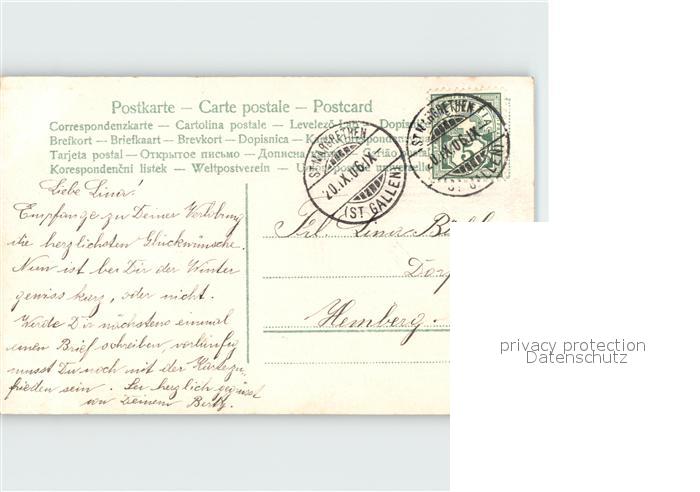 Postkarte — Carte postale — Postcard
Correspondenzkarte — Cartolina postale — Levelező-Lap — Dopis
Brefkort — Briefkaart — Brevkort — Dopisnica — K
Tarjeta postal — Открытое письмо — Дописна
Korespondenční listek — Weltpostverein — Un postale universelle
ST MARGRETHEN
20.IX.06.IX-
(ST GALLEN)
ST MARGRETHEN
20.IX.06.IX-
(ST GALLEN)
5
Liebe Lina!
Empfange zu Deiner Verlobung
die herzlichsten Glückwünsche.
Nun ist bei Dir der Winter
gewiss kurz, oder nicht.
Werde Dir nächstens einmal
einen Brief schreiben, vorläufig
musst Du noch mit der Karte zu-
frieden sein. Sei herzlich gegrüsst
von Deinem
Frl. Lina
Dorf
Hemberg.
privacy protection
Datenschutz